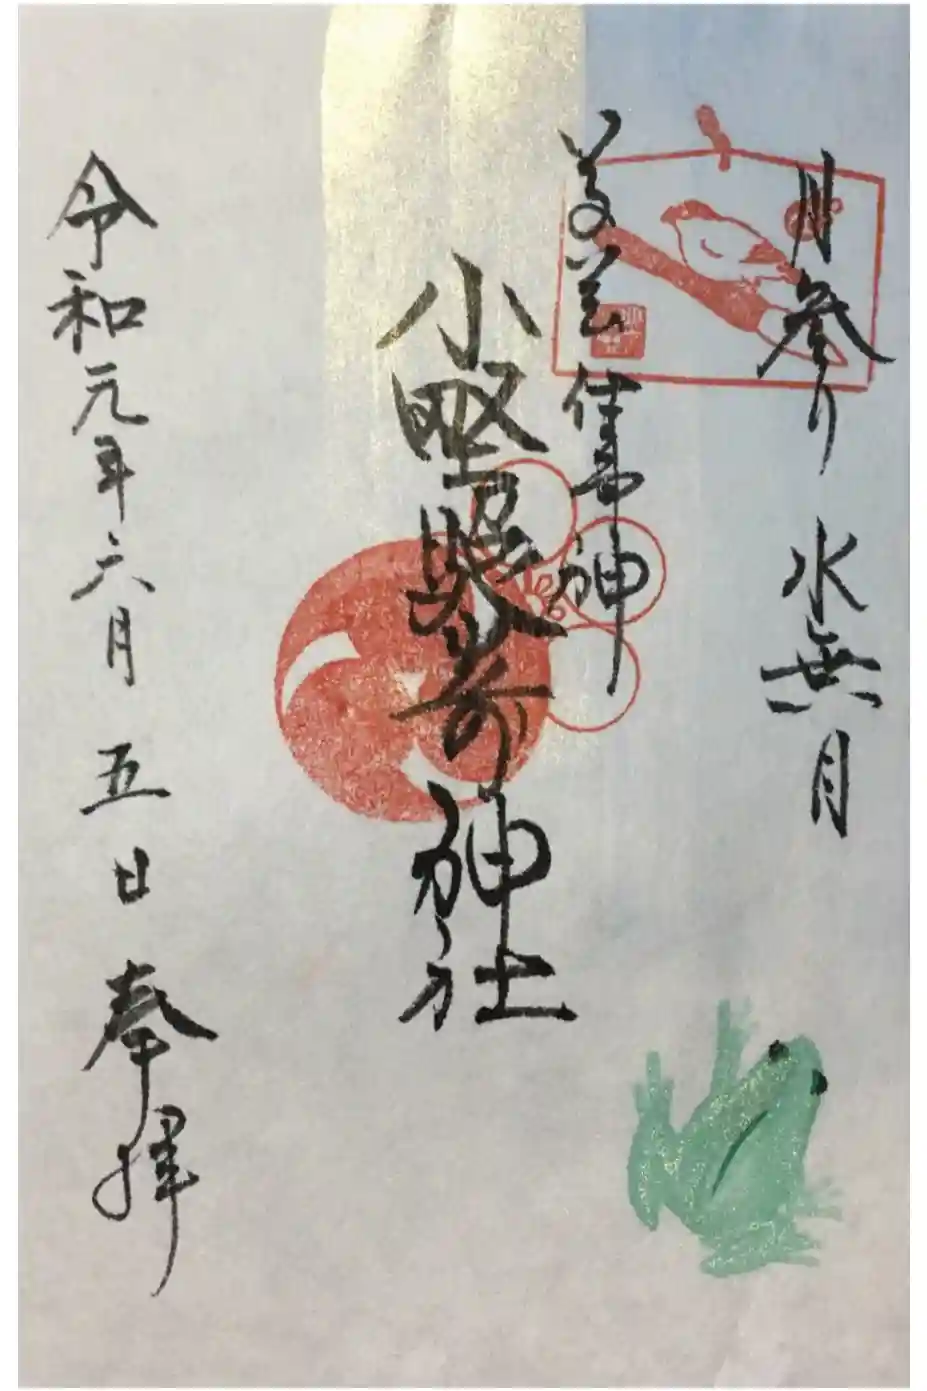 月参り 水無月
神
小野照崎神社
令和元年六月五日奉拝